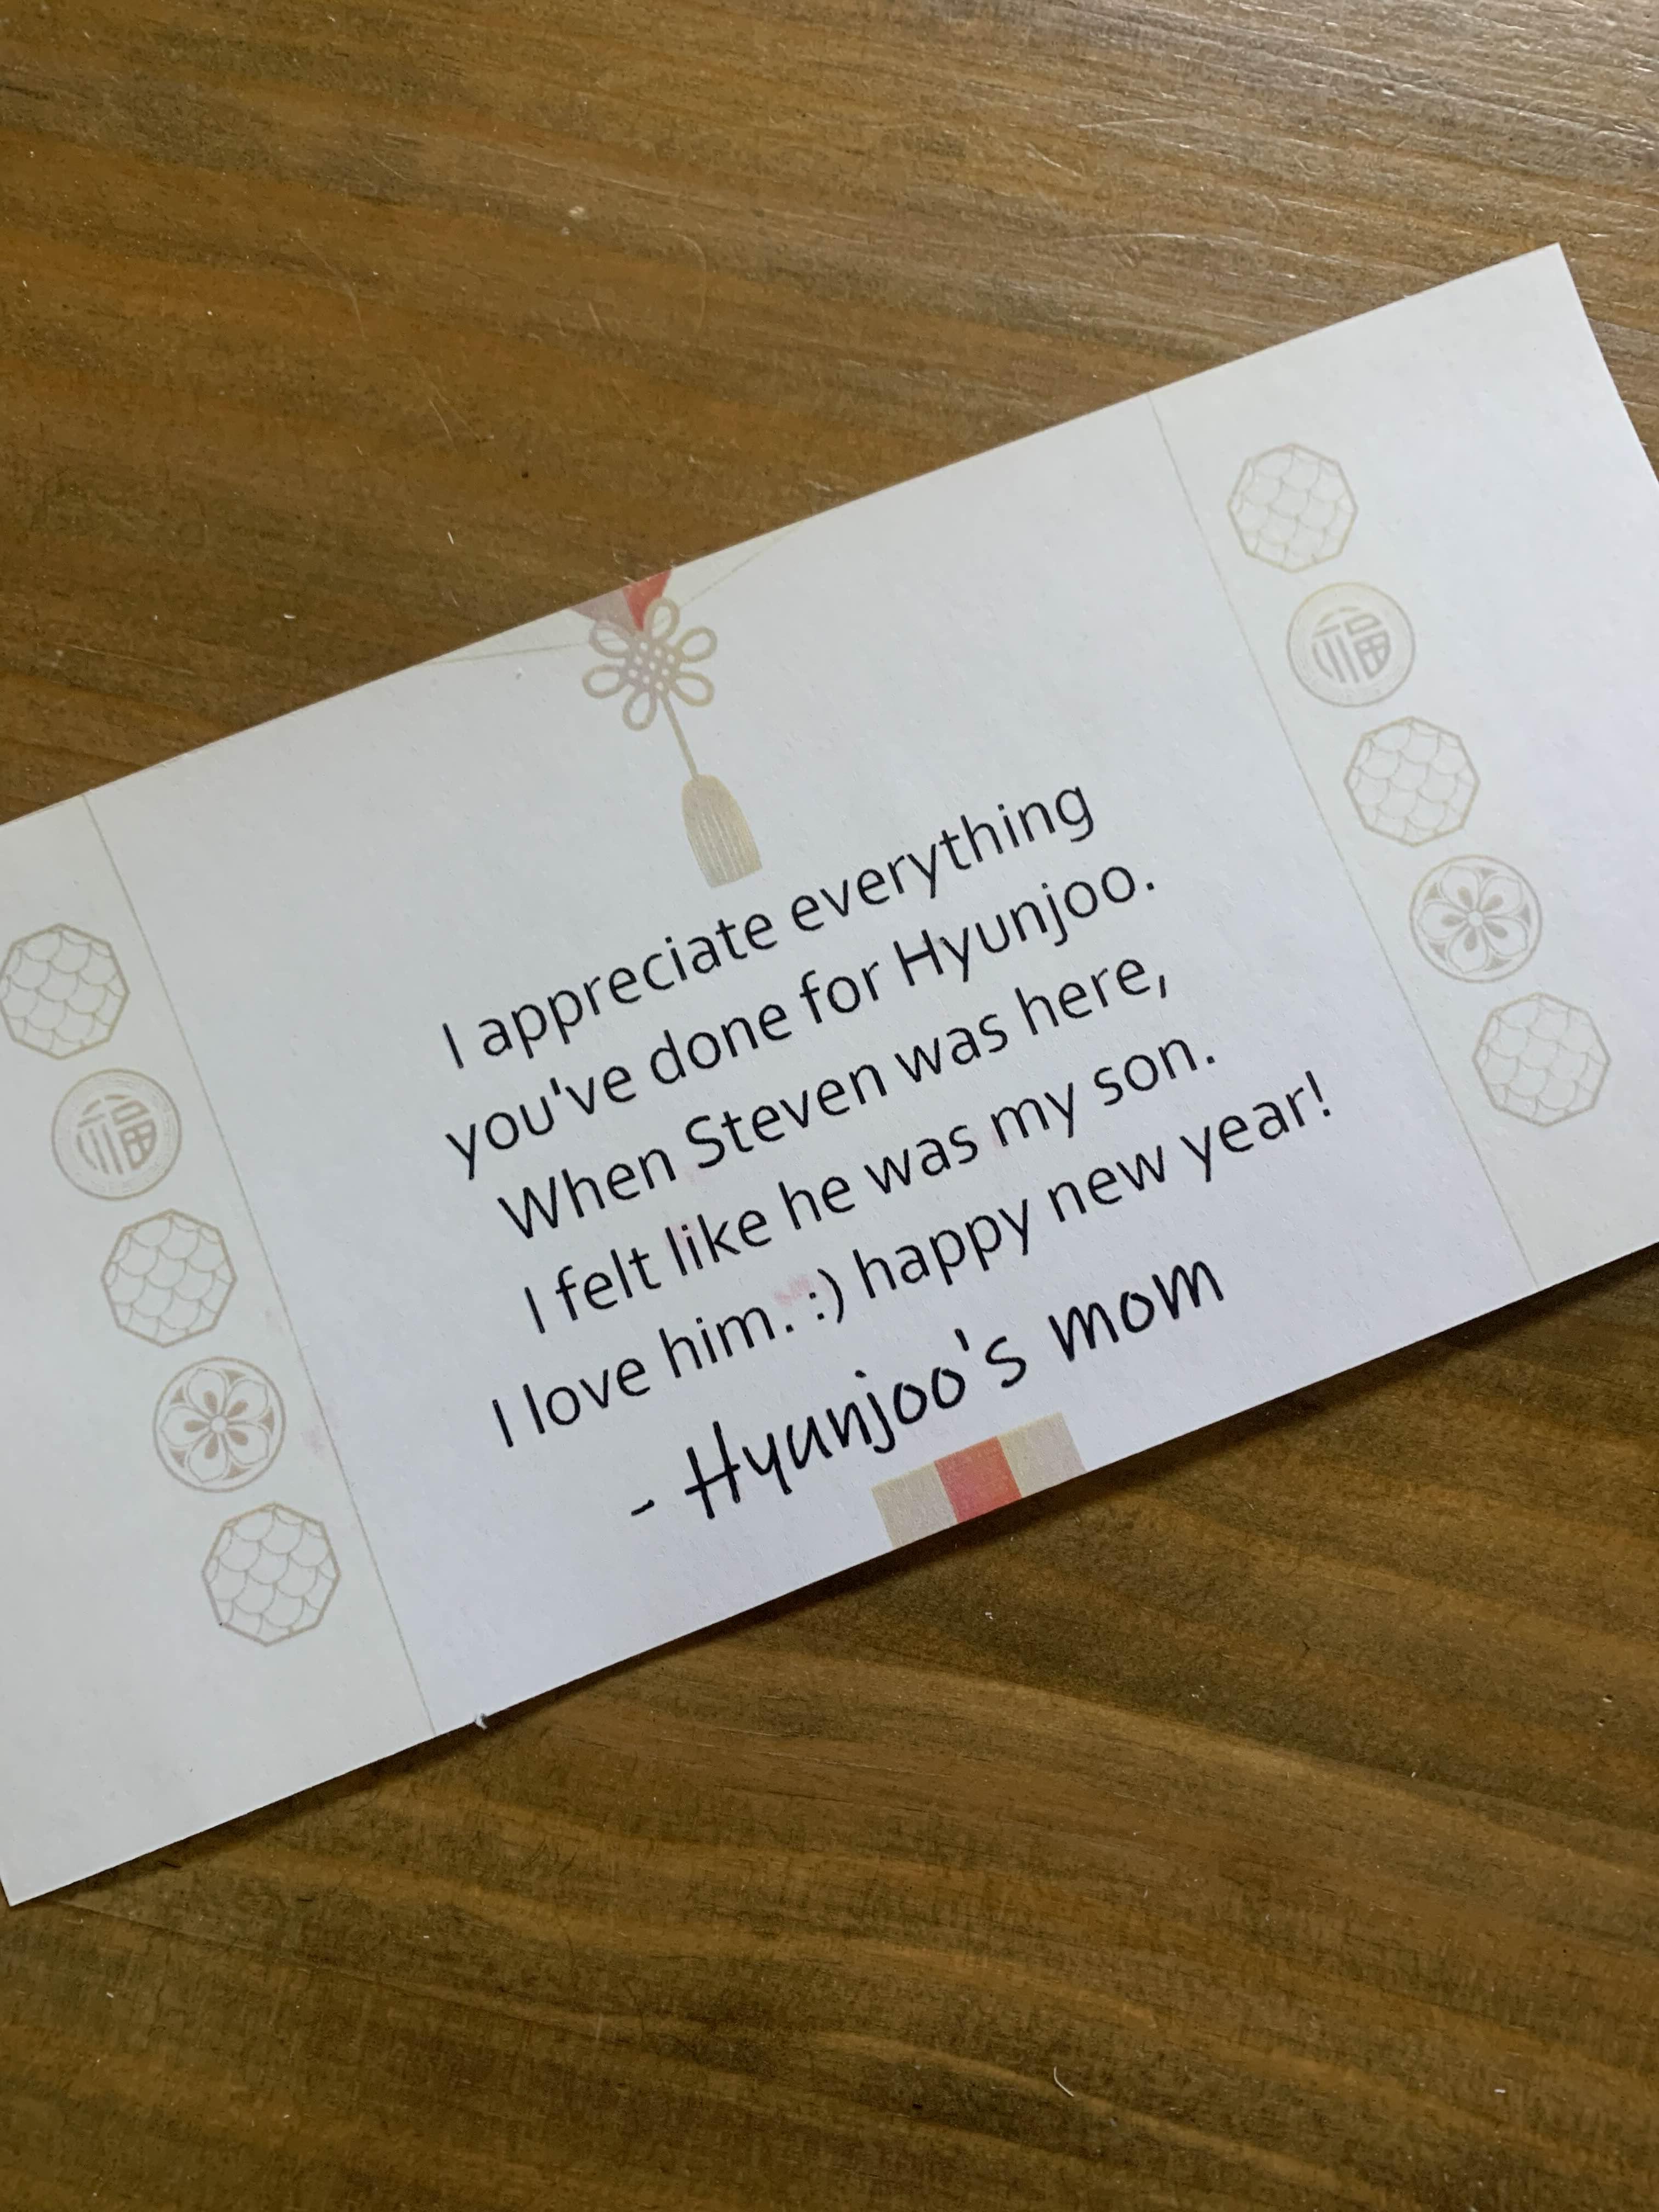 I appreciate everything
you've done for Hyunjoo.
When Steven was here,
I felt like he was my son.
I love him. :) happy new year!
- Hyunjoo's mom
福
福